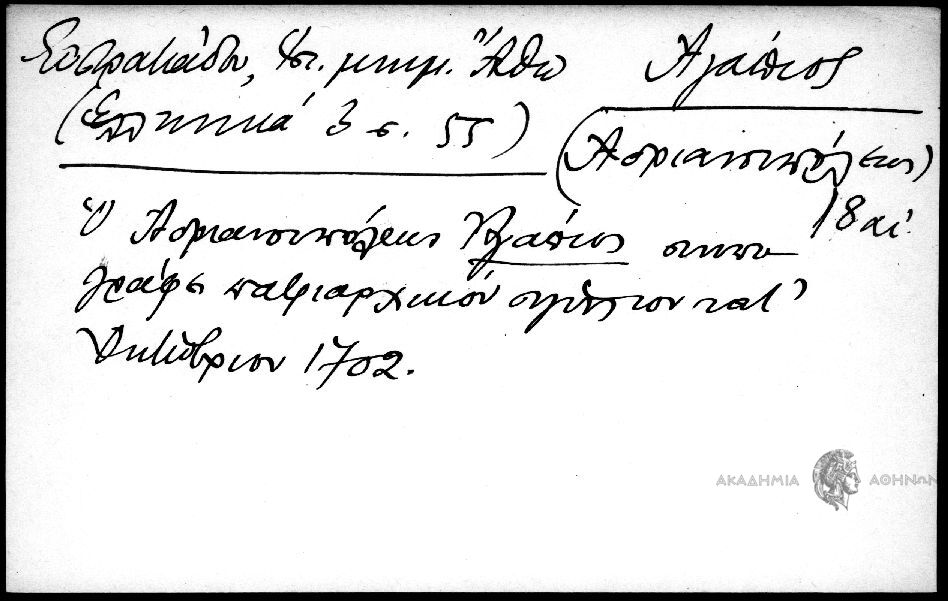 Εὐστρατιάδου, Ἱστ. μνημ. Ἄθω
(Ἑλληνικά 3 σ. 55)
Ἀγάπιος
(Ἀδριανουπόλεως)
18 αἰ.
Ὁ Ἀδριανουπόλεως Ἀγάπιος συνυπο
γράφει πατριαρχικόν σιγίλλιον κατ'
Ὀκτώβριον 1702.
ΑΚΑΔΗΜΙΑ ΑΘΗΝΩΝ